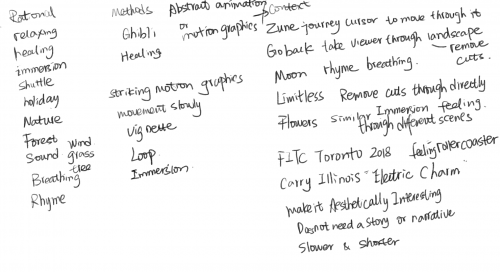 Rational
relaxing
healing
immersion
shuttle
holiday
Nature
Forest wind
Sound grass
tree
Breathing
Rhyme
Methods
Ghibli
Healing
striking motion graphics
movement slowly
vignette
Loop
Immersion.
Abstract animation
or
motion graphics
Context
Zune journey cursor to move through it
Go back take viewer through landscape
Moon rhyme breathing. remove
cuts.
Limitless Remove cuts through directly
Flowers similar Immersion feeling.
through different scenes
FITC Toronto 2018 feeling roller coaster
Carry Illinois "Electric Charm"
make it Aesthetically Interesting
Does not need a story or narrative
Slower & shorter